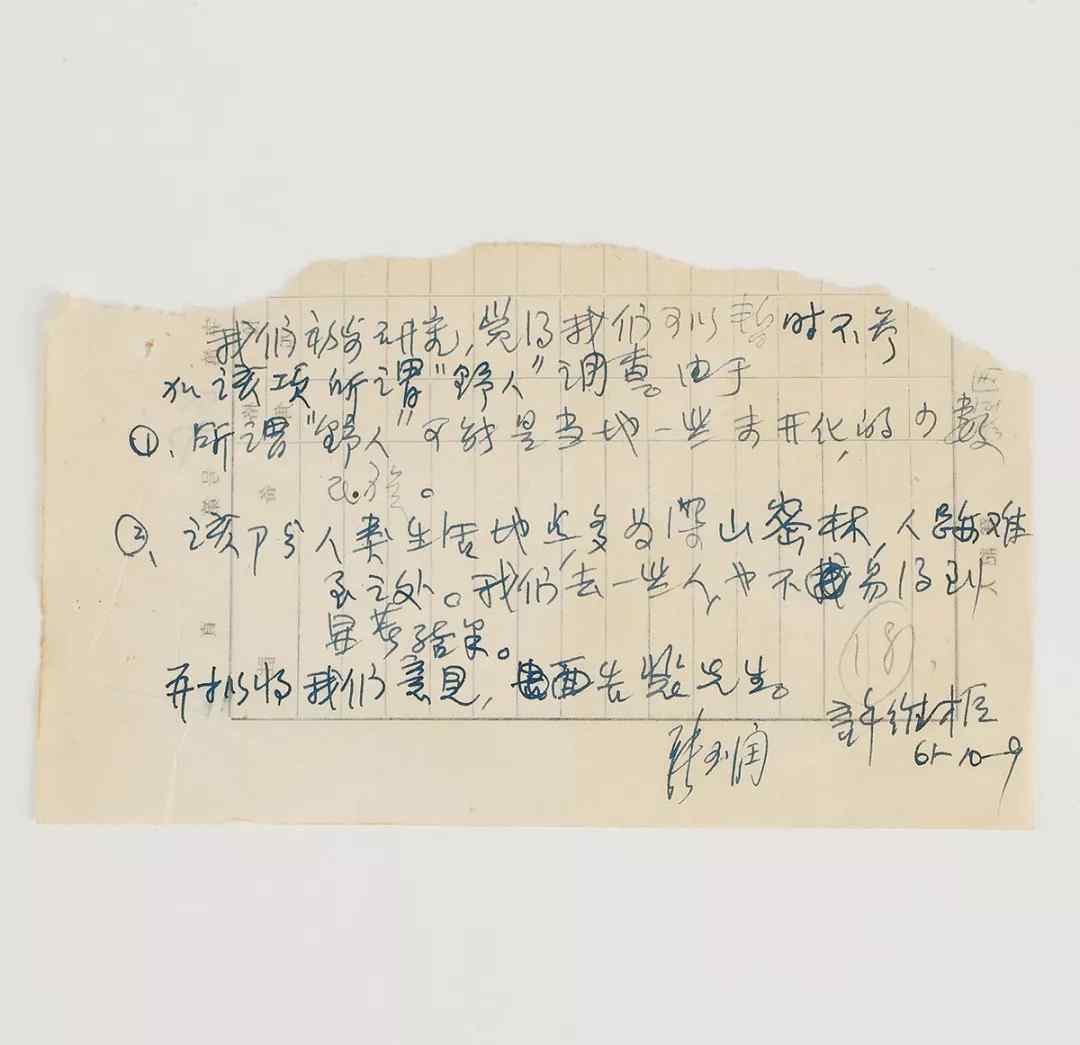 我们初步研究,觉得我们可以暂时不参
加该项所谓“野人”调查。由于
①、所谓“野人”可能是当地一些未开化的少数
民族。
②、该部分人类生活地点多为深山密林,人路难
至之处。我们去一些人,也不易得到
显著结果。
并拟将我们意见,面告裴先生。
(18)
许维枢
张玉润
61-10-9